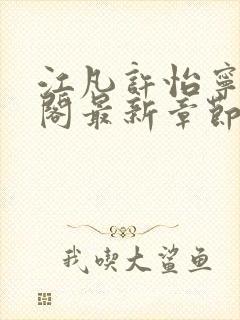 江凡許怡寧
閣最新章節
我喫大鯊鱼